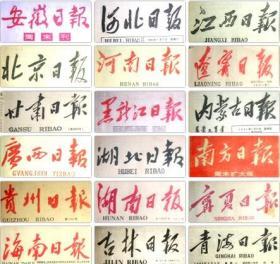 安徽日報
周末刊
河北日報
HEBEI RIBAO
江西日報
JIANGXI RIBAO
北京日報
河南日報
HENAN RIBAO
遼寧日報
LIAONING RIBAO
甘肅日報
GANSU RIBAO
黑龍江日報
內蒙古日報
廣西日報
GVANGJSIH YIZBAU
湖北日報
HUBEI RIBAO
南方日報
周末扩大版
貴州日報
GUIZHOU RIBAO
湖南日報
HUNAN RIBAO
寧夏日報
NINGXIA RIBAO
海南日報
HAINAN RIBAO
吉林日報
JILIN RIBAO
青海日報
QINGHAI RIBAO